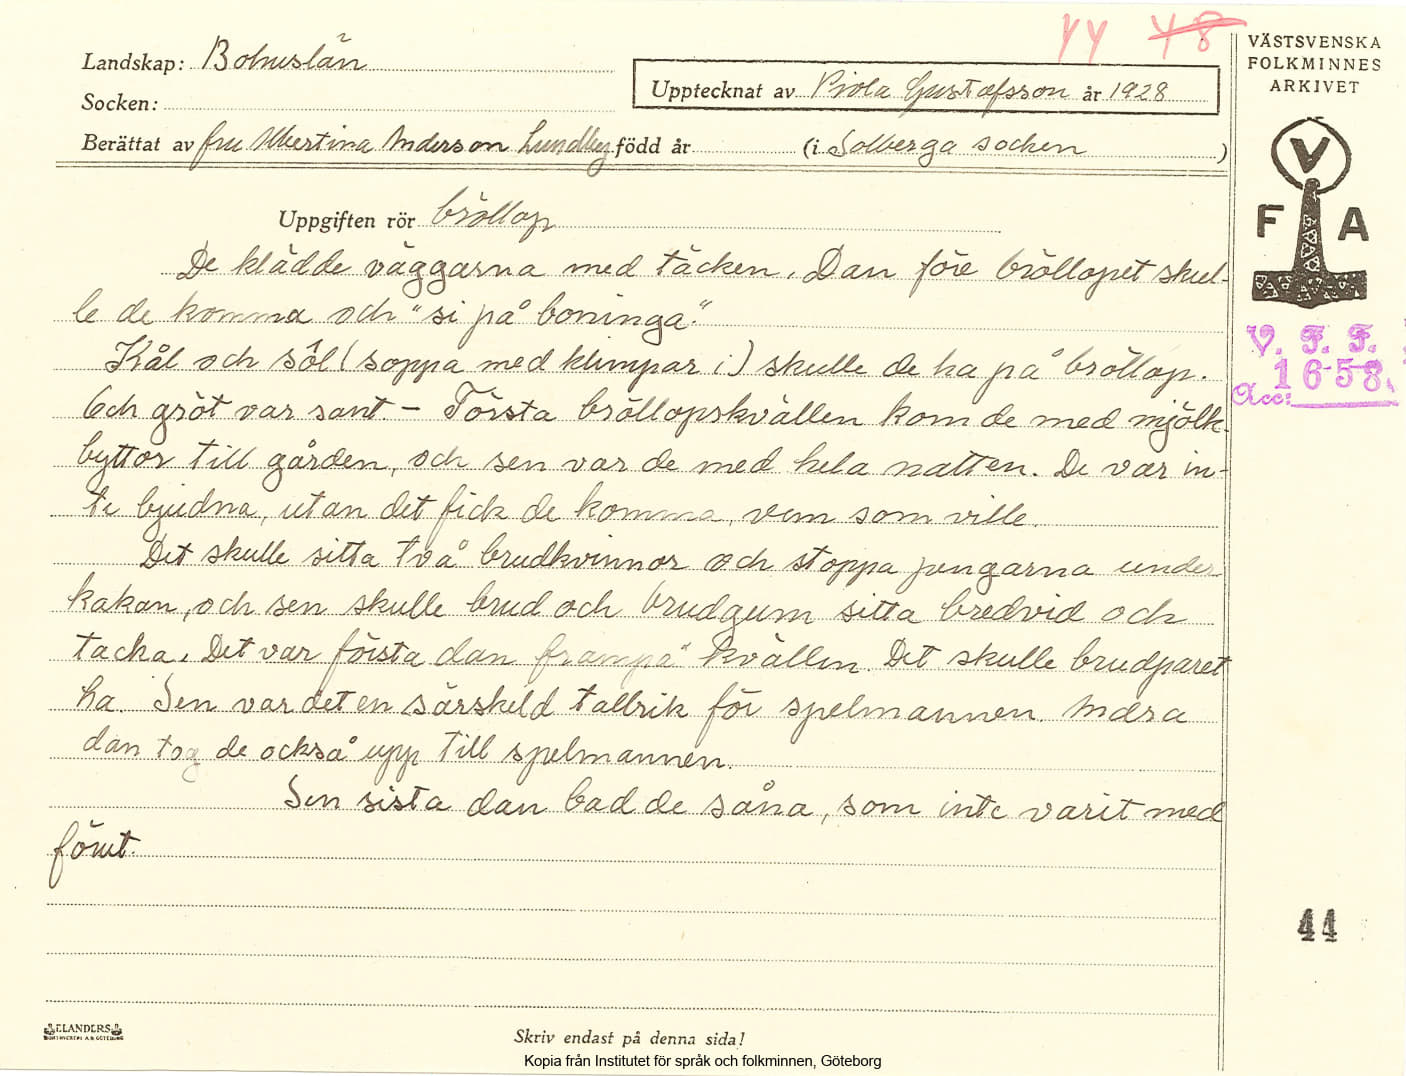 44 48
VÄSTSVENSKA
FOLKMINNES
ARKIVET
Landskap: Bohuslän
Upptecknat av Viola Gustafsson år 1928
Socken:
Berättat av fru Albertina Anderson Lundby född år (i Solberga socken )
V
F A
Uppgiften rör bröllop
De klädde väggarna med täcken. Dan före bröllopet skul-
le de komma och "si på boninga".
Kål och sôl (soppa med klimpar i) skulle de ha på bröllop.
Och gröt var sant. - Första bröllopskvällen kom de med mjölk-
byttor till gården, och sen var de med hela natten. De var in-
te bjudna, utan det fick de komma, vem som ville.
Det skulle sitta två brudkvinnor och stoppa pengarna under
kakan, och sen skulle brud och brudgum sitta bredvid och
tacka. Det var första dan frampå kvällen. Det skulle brudparet
ha. Sen var det en särskeld tallrik för spelmannen. Andra
dan tog de också upp till spelmannen.
Sen sista dan bad de såna, som inte varit med
förut.
V. F. F.
Acc: 1658.
44
ELANDERS
Skriv endast på denna sida!
Kopia från Institutet för språk och folkminnen, Göteborg